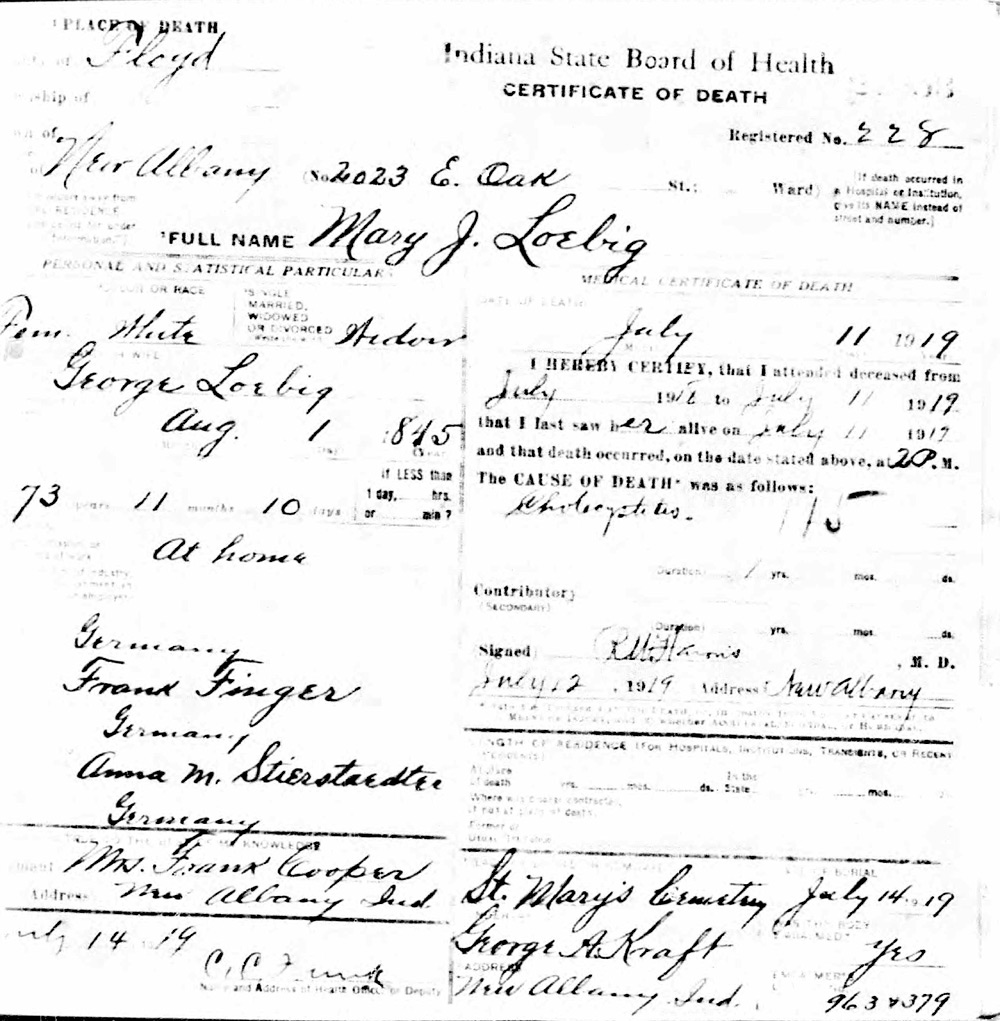 PLACE OF DEATH
Floyd
Indiana State Board of Health
CERTIFICATE OF DEATH
Registered No. 228
New Albany (No. 2023 E. Oak St.; Ward)
[If death occurred in
a Hospital or Institution,
give its NAME instead of
street and number.]
FULL NAME Mary J. Loebig
PERSONAL AND STATISTICAL PARTICULARS
OR RACE
SINGLE
MARRIED,
WIDOWED
OR DIVORCED
Fem. White Widow
George Loebig
Aug. 1 1845
If LESS than
1 day, hrs.
or min?
73 years 11 months 10 days
At home
Germany
Frank Finger
Germany
Anna M. Stierstaedter
Germany
Mrs. Frank Cooper
Address New Albany Ind.
July 14 1919
Name and Address of Health Officer or Deputy
MEDICAL CERTIFICATE OF DEATH
DATE OF DEATH
July 11 1919
I HEREBY CERTIFY, that I attended deceased from
July 1918 to July 11 1919
that I last saw her alive on July 11 1919
and that death occurred, on the date stated above, at 2 P. M.
The CAUSE OF DEATH* was as follows:
Cholecystitis. 115
(Duration) 1 yrs. mos. ds.
Contributory
(SECONDARY)
(Duration) yrs. mos. ds.
Signed R.W. Harris , M. D.
July 12 , 1919 (Address) New Albany
LENGTH OF RESIDENCE (FOR HOSPITALS, INSTITUTIONS, TRANSIENTS, OR RECENT
At place
of death yrs. mos. ds. In the State yrs. mos.
Where was disease contracted,
if not at place of death.
Former or
BURIAL
St. Mary's Cemetery July 14 1919
George A. Kraft Yes
ADDRESS
New Albany Ind. 963 & 379